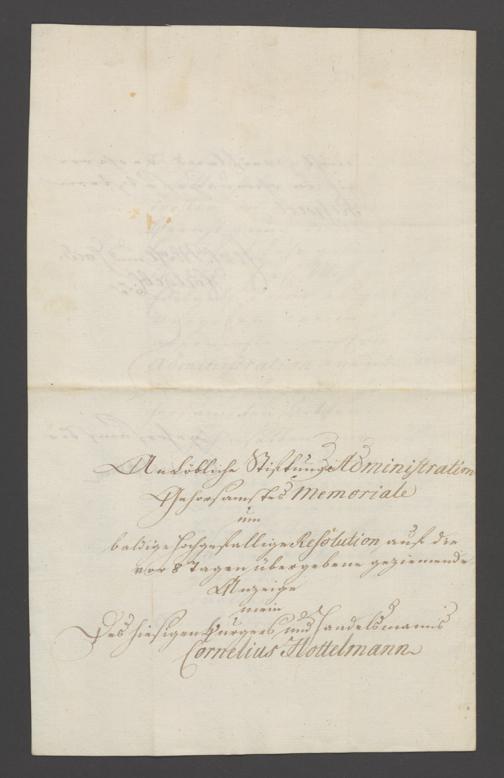 An Löbliche Stiftungs Administration
Gehorsamstes Memoriale
um
baldige hochgefällige Resolution, auf die
vor 8 Tagen übergebene geziemende
Anzeige
mein
Des hiesigen Burgers und Handelsmanns
Cornelius Hottelmann